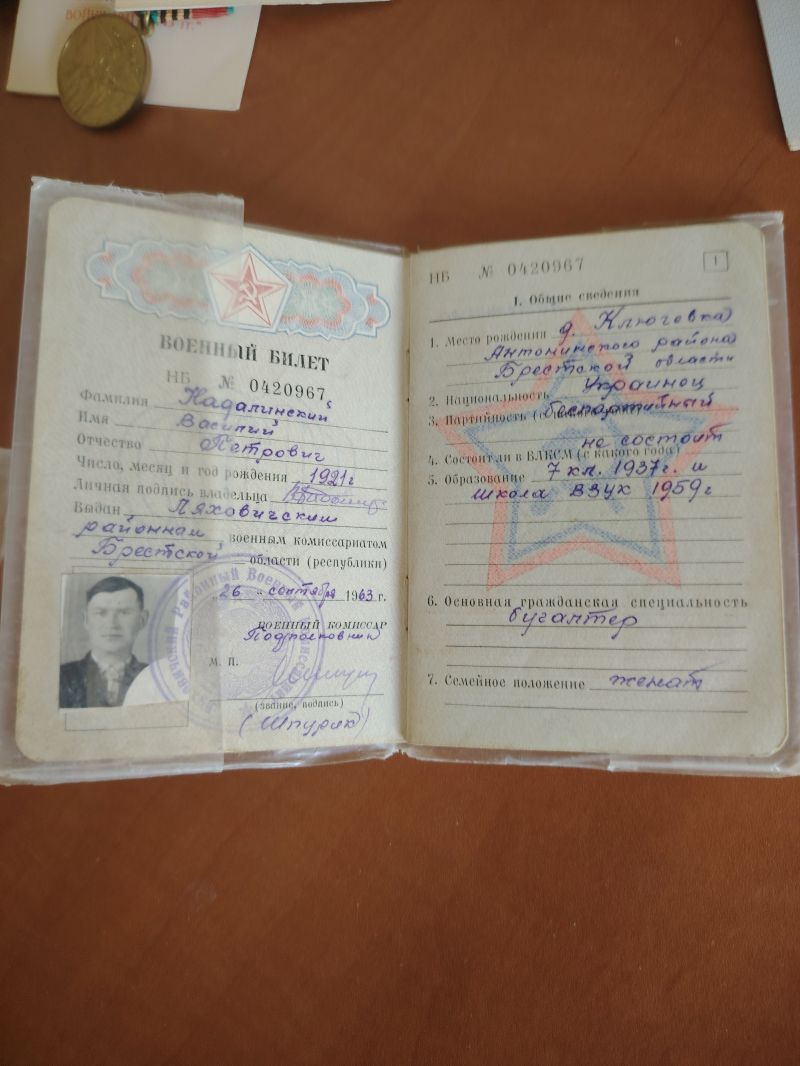 ВОЕННЫЙ БИЛЕТ
НБ № 0420967
Фамилия Надалинский
Имя Василий
Отчество Петрович
Число, месяц и год рождения 1921г
Личная подпись владельца
Выдан Ляховичским
районным военным комиссариатом
Брестской области (республики)
„26 “ сентября 1963 г.
ВОЕННЫЙ КОМИССАР
Подполковник
М. П.
(звание, подпись)
(Шпурик)
НБ № 0420967 1
I. Общие сведения
1. Место рождения д. Клюговка
Антонинского района
Брестской области
2. Национальность Украинец
3. Партийность Беспартийный
не состоит
4. Состоял ли в ВЛКСМ (с какого года)
5. Образование 7 кл. 1937г. и
школа ВЗУК 1959г
6. Основная гражданская специальность
бугалтер
7. Семейное положение женат